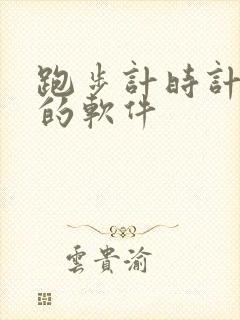 跑步計時計
的軟件
雲貴渝